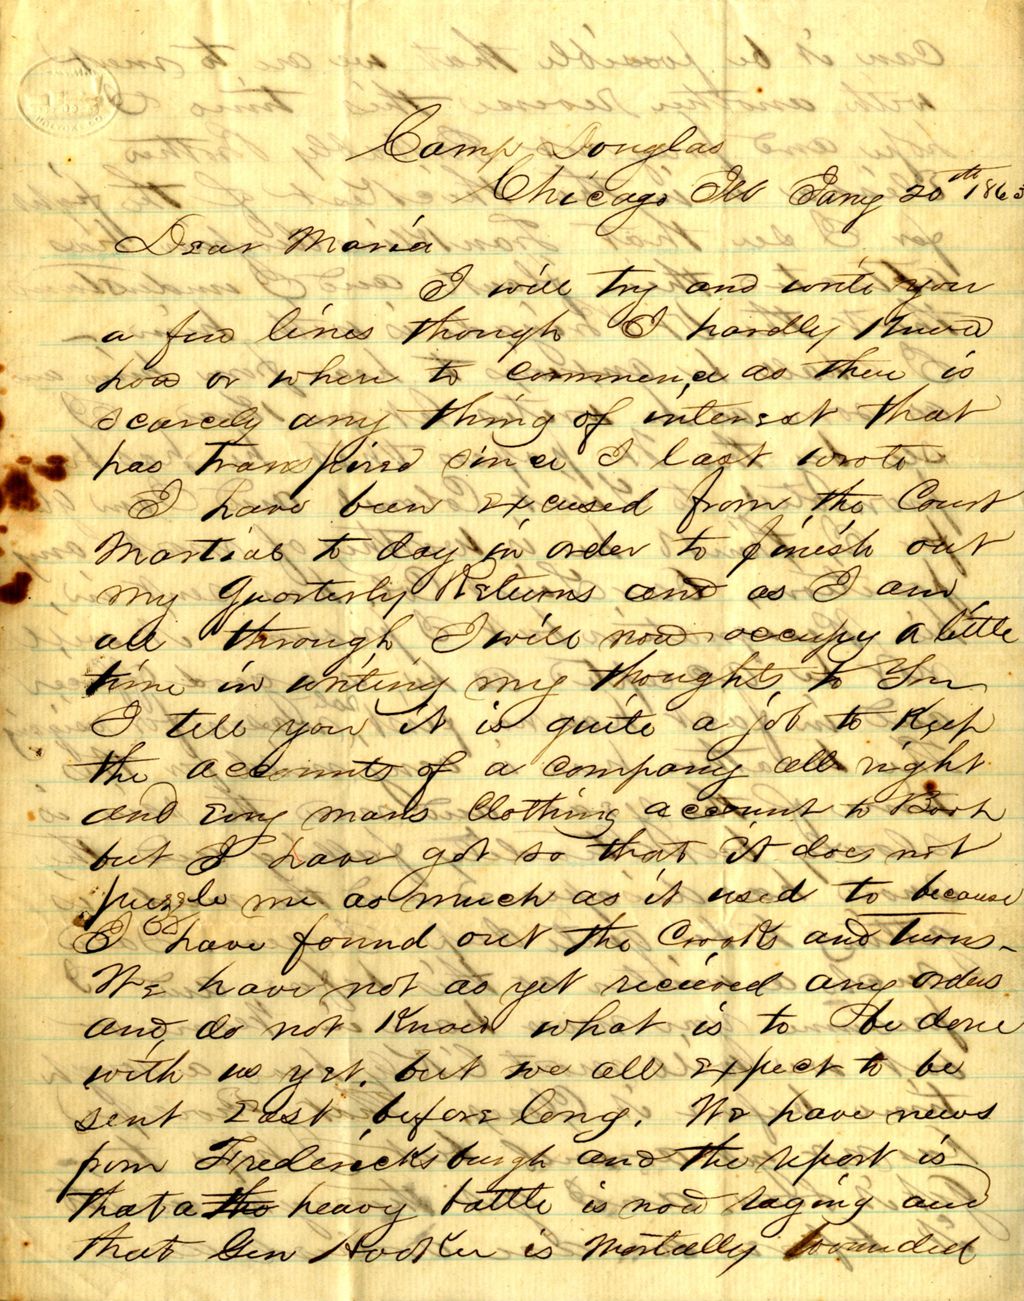 Camp Douglas
Chicago Ill Jany 20th 1863
Dear Maria
I will try and write you
a few lines though I hardly know
how or where to commence as there is
scarcely any thing of interest that
has transpired since I last wrote
I have been excused from the Court
Martial to day in order to finish out
my Quarterly Returns and as I am
all through I will now occupy a little
time in writing my thoughts to You
I tell you it is quite a job to Keep
the accounts of a company all right
and evry mans Clothing account to Boot
but I have got so that it does not
puzzle me as much as it used to because
I have found out the Crooks and turns -
We have not as yet recieved any orders
and do not Know what is to be done
with us yet. but we all expect to be
sent East before long. We have news
from Fredericksburgh and the report is
that a the heavy battle is now raging and
that Gen Hooker is Mortally wounded